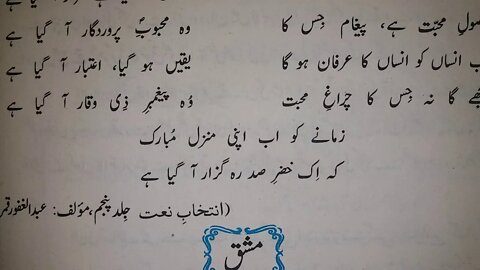 اصولِ محبّت ہے، پیغام جِس کا وہ محبوبِؐ پروردگار آ گیا ہے
انساں کو انساں کا عرفان ہو گا یقیں ہو گیا، اعتبار آ گیا ہے
گا نہ جِس کا چراغِ محبت وُہ پیغمبرِ ذِی وقار آ گیا ہے
زمانے کو اب اپنی منزل مُبارک
کہ اِک خضرِ صد رہ گزار آ گیا ہے
(انتخابِ نعت جِلد پنجم، مؤلف: عبدالغفور قمر
مشق